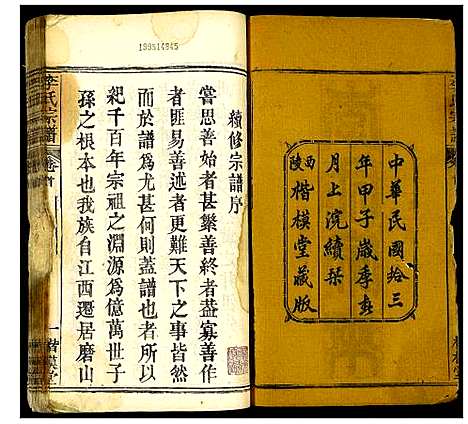 中華民國拾三
年甲子歲季春
月上浣續栞
陝西
楷模堂藏版
續修宗譜序
嘗思善始者甚繁善終者葢寡善作
者匪易善述者更難天下之事皆然
而於譜為尤甚何則葢譜也者所以
紀千百年宗祖之淵源為億萬世子
孫之根本也我族自江西遷居磨山
李氏宗譜
卷首
一
楷模堂